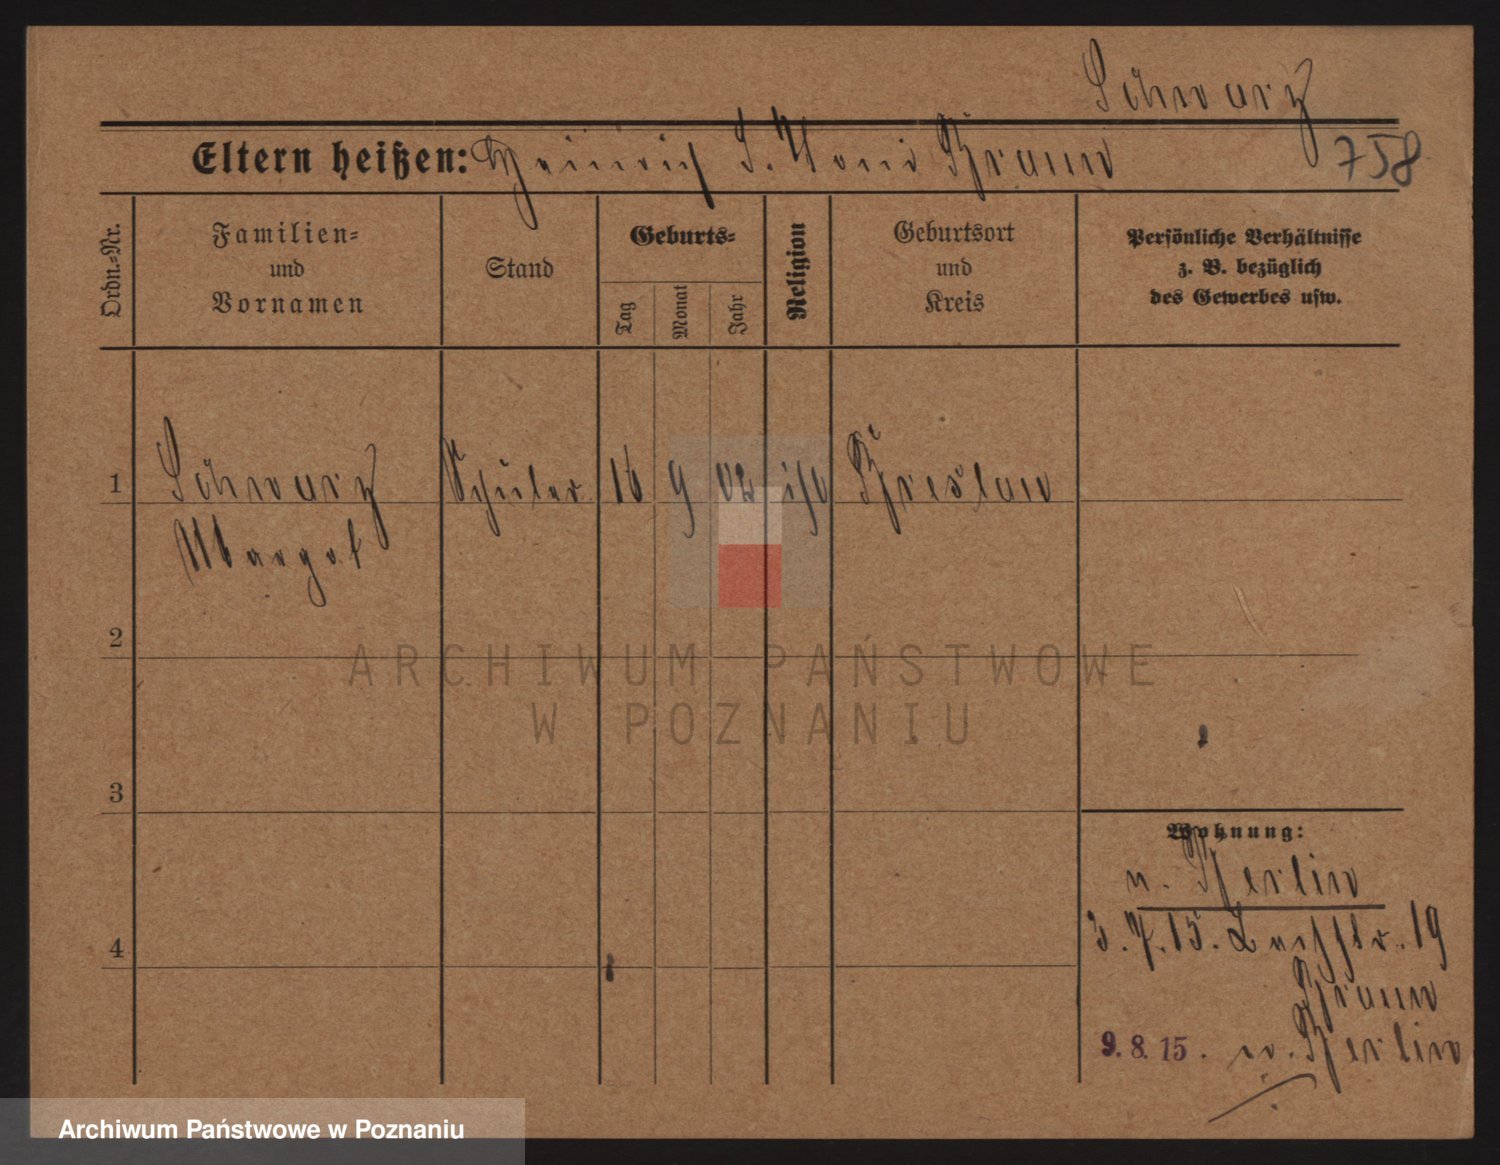 Schwarz
Eltern heißen: Heinrich Braun
758
Ordn.=Nr.
Familien=
und
Vornamen
Stand
Geburts=
Tag
Monat
Jahr
Religion
Geburtsort
und
Kreis
Persönliche Verhältnisse
z. B. bezüglich
des Gewerbes usw.
1 Schwarz Schüler 16 9 02 isr Breslau
Margot
2
3
4
Wohnung:
n. Berlin
3. 7. 15. 19
Braun
9. 8. 15. Berlin
ARCHIWUM PAŃSTWOWE
W POZNANIU
Archiwum Państwowe w Poznaniu